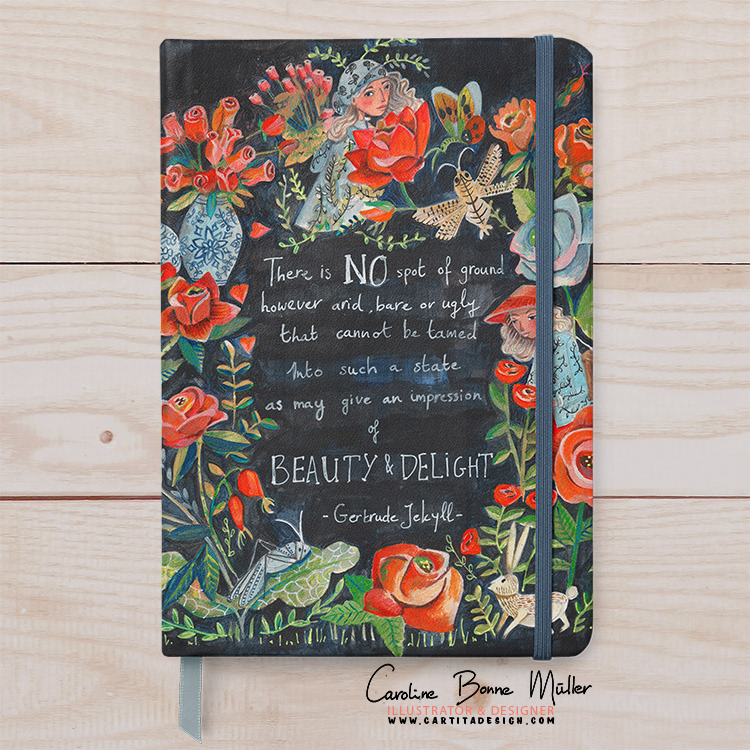 There is NO spot of ground
however arid, bare or ugly
that cannot be tamed
Into such a state
as may give an impression
of
BEAUTY & DELIGHT
- Gertrude Jekyll -
Caroline Bonne Müller
ILLUSTRATOR & DESIGNER
WWW.CARTITADESIGN.COM